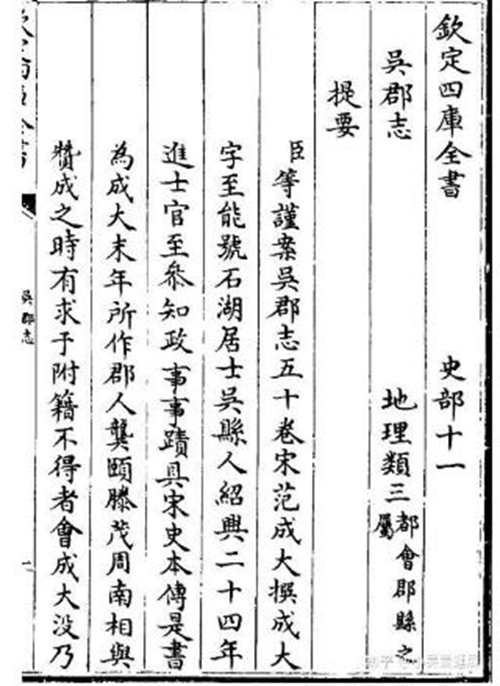 欽定四庫全書 史部十一
吳郡志 地理類三都會郡縣之屬
提要
臣等謹案吳郡志五十卷宋范成大撰成大
字至能號石湖居士吳縣人紹興二十四年
進士官至參知政事事蹟具宋史本傳是書
為成大末年所作郡人龔頤滕茂周南相與
贊成之時有求于附籍不得者會成大没乃
吳郡志
知乎